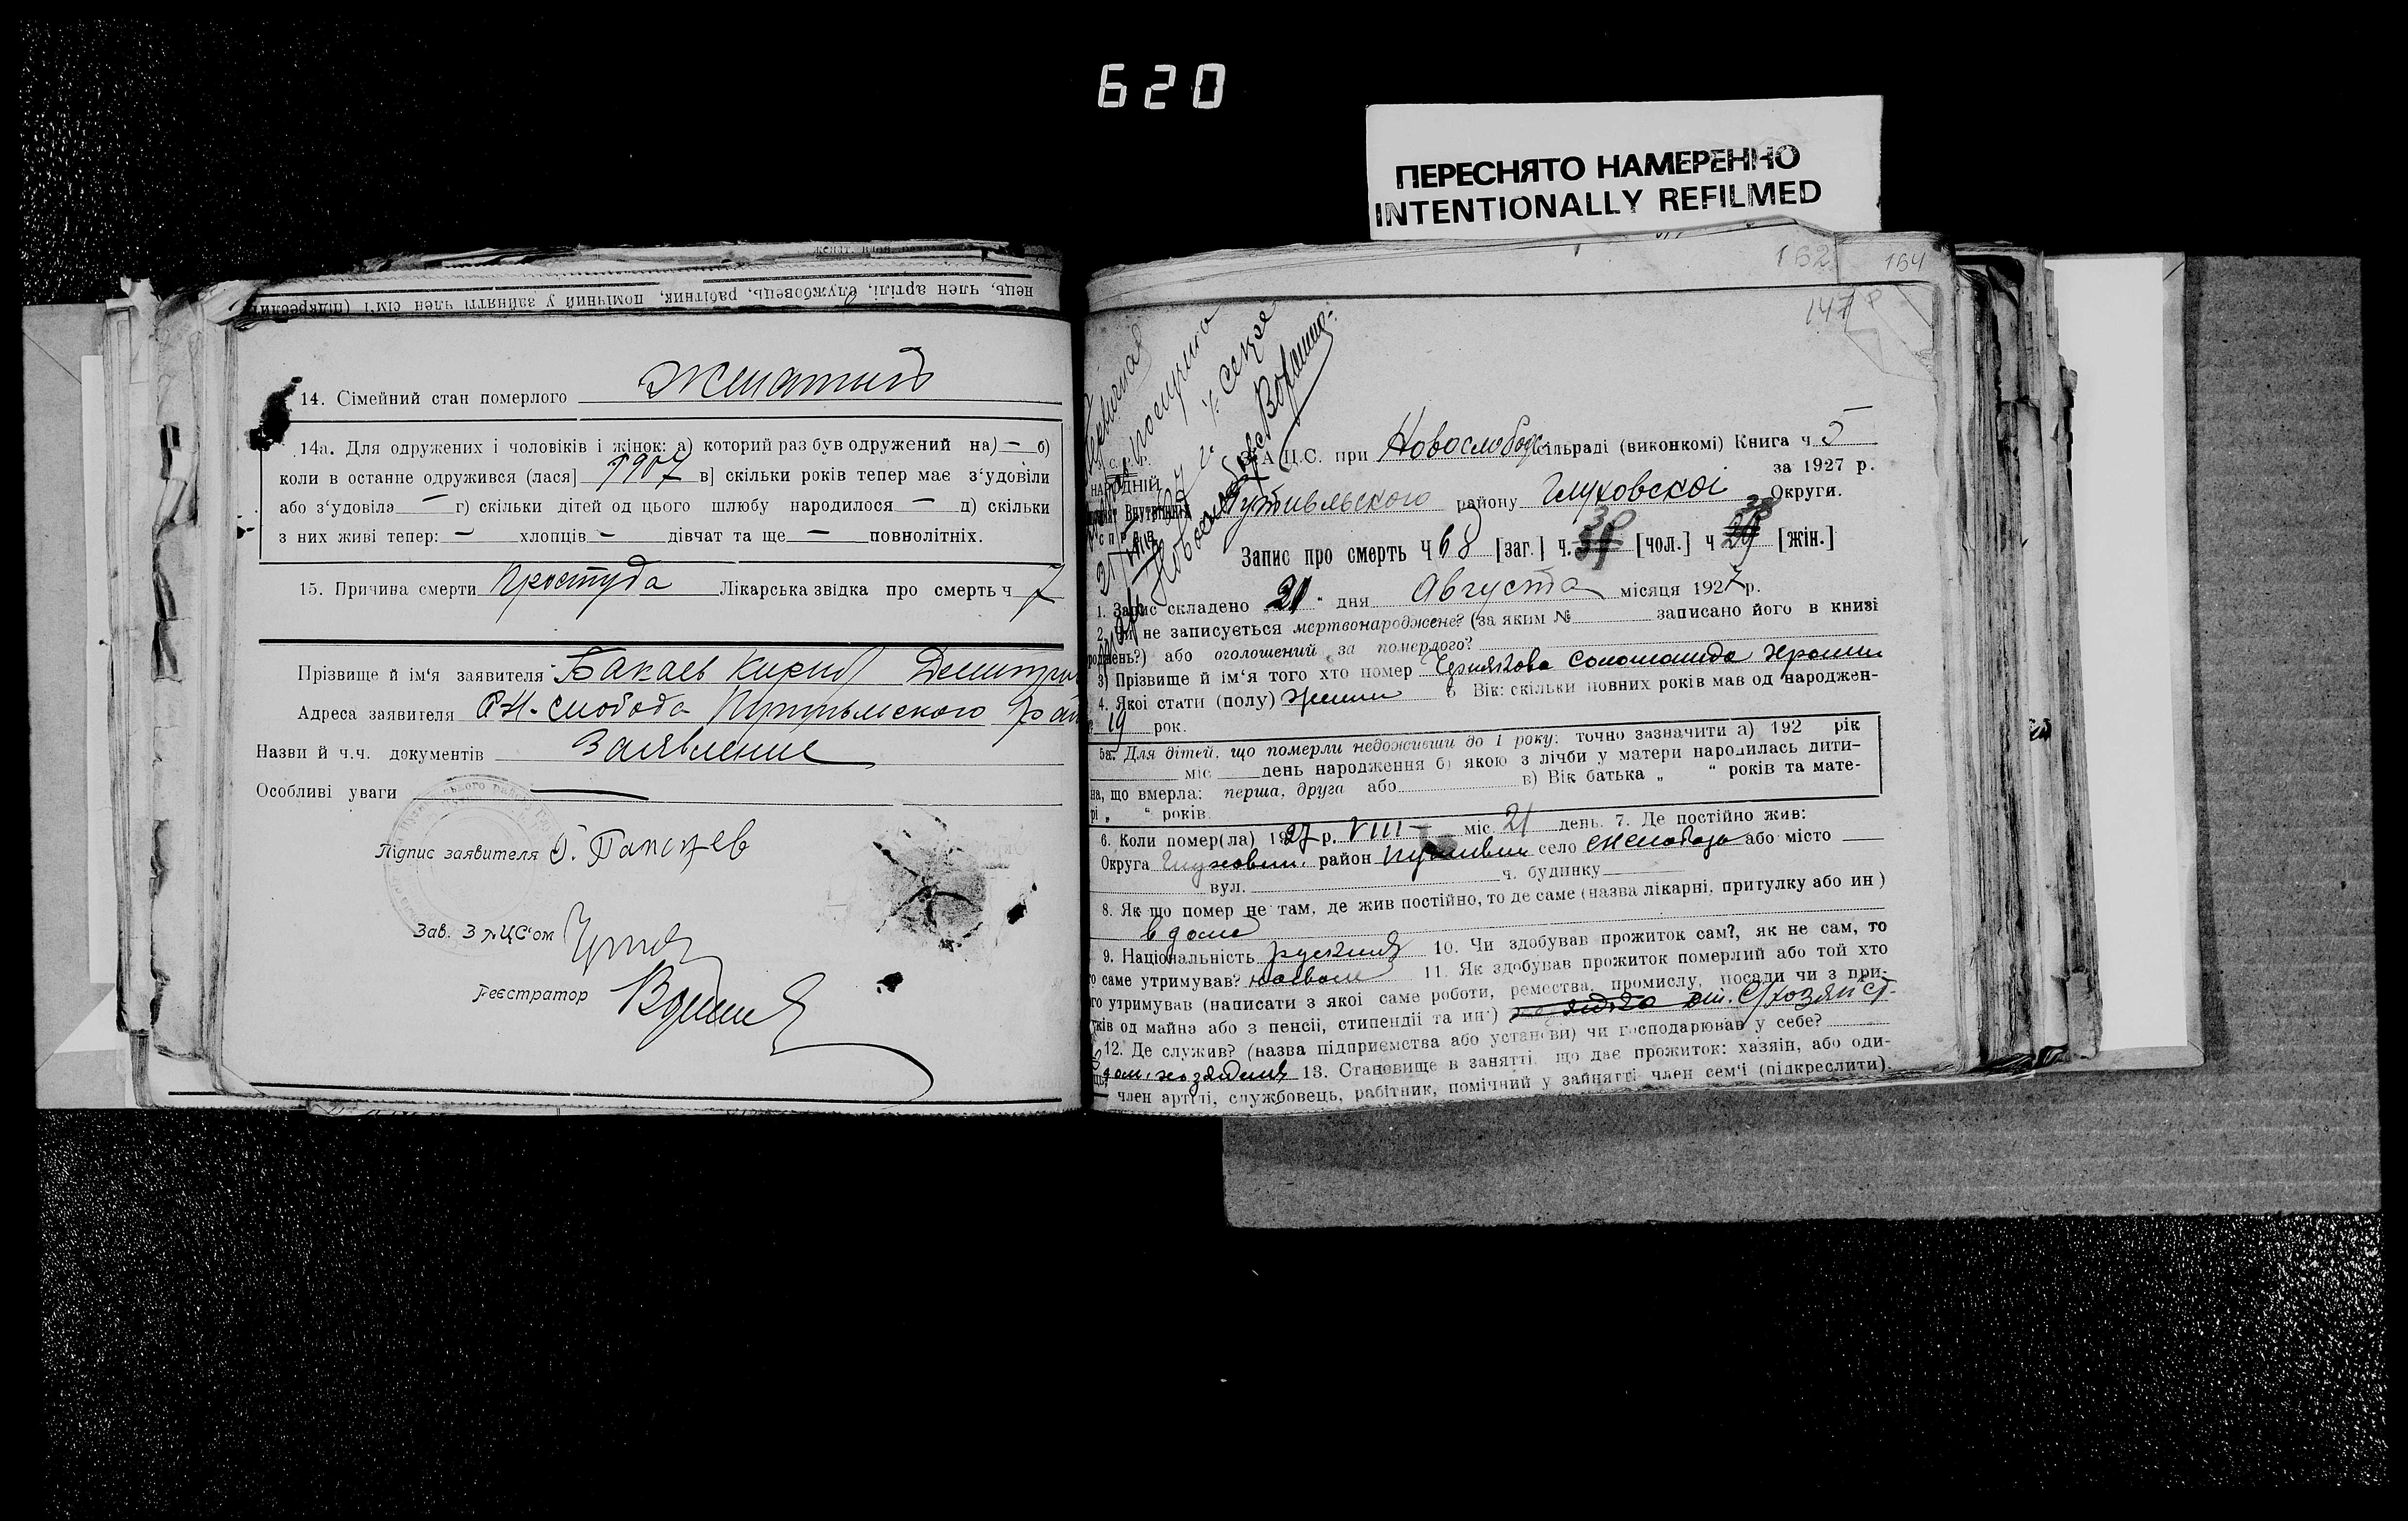 620
ПЕРЕСНЯТО НАМЕРЕННО
INTENTIONALLY REFILMED
нець, член артілі, службовець, рабітник, помічний у зайнятті член сім'ї (підкреслити)
14. Сімейний стан померлого Женатый
14а. Для одружених і чоловіків і жінок: а) которий раз був одружений на) — б)
коли в останне одружився (лася] 1907 в] скільки років тепер має з‘удовіли
або з‘удовіла — г) скільки дітей од цього шлюбу народилося — д) скільки
з них живі тепер: — хлопців — дівчат та ще — повнолітніх.
15. Причина смерти Простуда Лікарська звідка про смерть ч
Прізвище й ім‘я заявителя Бакаев Кирил Дмитри
Адреса заявителя Сл. Н-Слобода Путивльского рай
Назви й ч.ч. документів Заявление
Особливі уваги —
Підпис заявителя
Зав. ЗАЦС‘ом
Реєстратор
162 164
147
З.А.Ц.С. при Новослобод. сільраді (виконкомі) Книга ч 5
за 1927 р.
НАРОДНІЙ
Путивльского району Глуховскоі Округи.
Внутрішніх
справ
30 38
Запис про смерть ч 68 [заг.] ч. 31 [чол.] ч 29 [жін.]
1. Запис складено 21 “ дня Августа місяця 1927 р.
2. Чи не записується мертвонароджене? (за яким № записано його в книзі
роджень?) або оголошений за померлого?
3) Прізвище й ім‘я того хто помер Соломонида
4. Якої стати (полу) женш 5 Вік: скільки повних років мав од народжен-
19 рок.
5а. Для дітей, що померли недоживши до 1 року: точно зазначити а) 192 рік
міс день народження б) якою з лічби у матери народилась дити-
на, що вмерла: перша, друга або в) Вік батька „ “ років та мате-
рі „ “ років.
6. Коли помер(ла) 1927 р. VIII — міс. 21 день. 7. Де постійно жив:
Округа Глуховск. район Путивльск село Н Слобода або місто —
вул. ч. будинку
8. Як що помер не там, де жив постійно, то де саме (назва лікарні, притулку або ин)
в доме
9. Національність русский 10. Чи здобував прожиток сам?, як не сам, то
о саме утримував? 11. Як здобував прожиток померлий або той хто
го утримував (написати з якоі саме роботи, ремества, промислу, посади чи з при-
тків од майна або з пенсіі, стипендіі та ин.) от. с/хозяйст.
12. Де служив? (назва підприємства або установи) чи господарював у себе?
дом. хозяйства 13. Становище в занятті, що дає прожиток: хазяін, або оди-
— член артілі, службовець, рабітник, помічний у зайнятті член сем‘і (підкреслити).